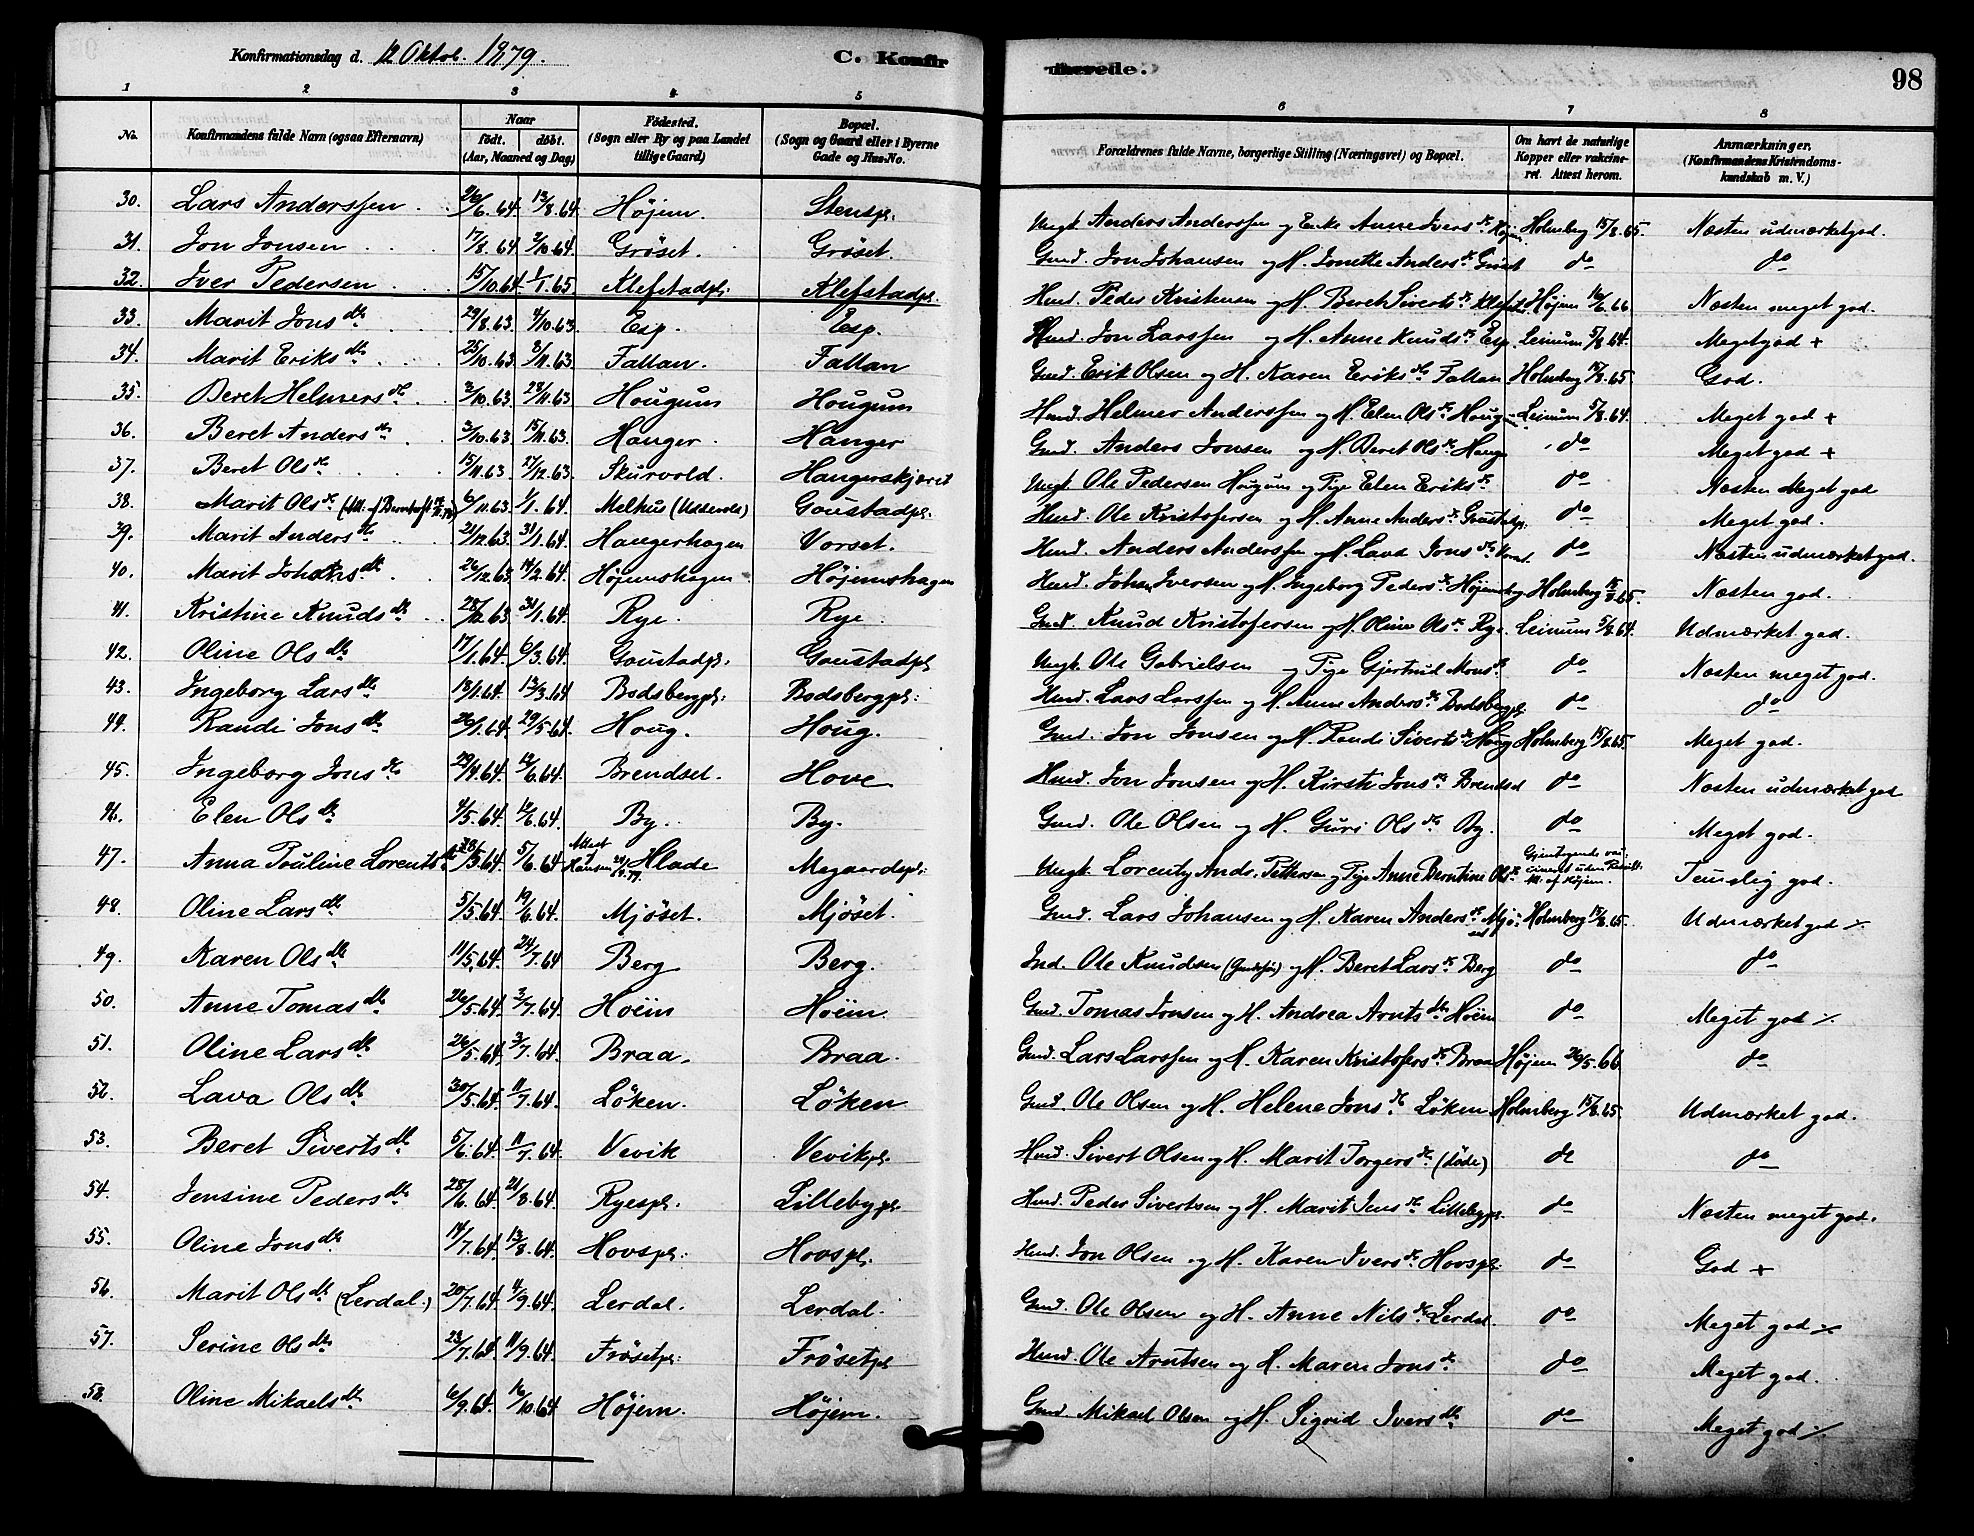 Konfirmationsdag d. 12 Oktob. 1879.
C. Konfirmerede.
98
1 2 3 4 5 6 7 8
No. | Konfirmandens fulde Navn (ogsaa Efternavn) | Naar født. døbt. (Aar, Maaned og Dag) | Fødested. (Sogn eller By og paa Landet tillige Gaard) | Bopæl. (Sogn og Gaard eller i Byerne Gade og Hus-No. | Forældrenes fulde Navne, borgerlige Stilling (Næringsvei) og Bopæl. | Om havt de naturlige Kopper eller vakcineret. Attest herom. | Anmærkninger. (Konfirmandens Kristendomskundskab m. V.)
30. Lars Anderssen 26/6.64 13/8.64 Højem. Stenspl. Ungk. Anders Anderssen og Enke Anne Ivers dr Højem Holmberg 15/8.65. Næsten udmærket god.
31. Jon Jonsen 17/8.64 2/10.64 Gröset. Gröset. Gmd. Jon Johansen og H. Jonette Anders dr Gröset do do
32. Iver Pedersen 15/10.64 1/1.65 Klefstadpl. Klefstadpl. Hmd. Peder Kristensen og H. Beret Siverts dr Højem 16/6.66 Næsten meget god.
33. Marit Jons dtr 29/8.63. 4/10.63 Esp. Esp. Hmd. Jon Larssen og H. Anne Knuds dr Esp. Leinum 5/8.64. Meget god +
34. Marit Eriks dtr 25/10.63 8/11.63 Fallan. Fallan Gmd. Erik Olsen og H. Karen Eriks dtr Fallan Holmberg 15/8.65 God.
35. Beret Helmers dtr 3/10.63 28/11.63 Hougum Hougum Hmd. Helmer Anderssen og H. Elen Ols dr Leinum 5/8.64. Meget god +
36. Beret Anders dtr 3/10.63. 15/11.63. Hanger. Hanger Gmd. Anders Jonsen og H. Beret Ols dr do Meget god +
37. Beret Ols dr 15/11.63 27/12.63 Skurvold. Hangerskjæret Ungk. Ole Pedersen Hougum og Pige Elen Eriks dr do Næsten Meget god
38. Marit Ols dr 6/11.63 1/1.64 Melhus Goustadpl. Hmd. Ole Kristofersen og H. Anne Anders dr Goustadpl. do Meget god.
39. Marit Anders dtr 21/12.63 31/1.64. Hangerhagen Vorset. Hmd. Anders Anderssen og H. Lava Jons dr Vorset do Næsten udmærket god.
40. Marit Johans dtr 26/12.63 14/2.64 Höjemshagen Höjemshagen Hmd. Johan Iversen og H. Ingeborg Peders dr Holmberg 15/8.65. Næsten god.
41. Kristine Knuds dtr 28/12.63 31/1.64. Rye. Rye. Gmd. Knud Kristofersen og H. Oline Ols dr Rye. Leinum 5/8.64. Udmærket god.
42. Oline Ols dtr 17/1.64. 6/3.64. Goustadpl. Goustadpl Ungk. Ole Gabrielsen og Pige Gjertrud Mons dr do Næsten meget god.
43. Ingeborg Lars dtr 13/1.64. 13/3.64 Bodsbergpl. Bodsbergpl. Hmd. Lars Larssen og H. Anne Anders dr Bodsbergpl do do
44. Randi Jons dtr 26/1.64. 29/5.64. Houg. Houg. Gmd. Jon Jonsen og H. Randi Siverts dr Houg Holmberg 15/8.65. Meget god.
45. Ingeborg Jons dr 29/4.64. 12/6.64. Brendset. Hove Hmd. Jon Jonsen og H. Kirsti Jons dr Brendset do Næsten udmærket god
46. Elen Ols dr 4/5.64. 12/6.64. By. By. Gmd. Ole Olsen og H. Guri Ols dtr By. do Meget god.
47. Anna Pouline Lorents dtr 5/6.64 Attest Hansen Hlade Megaardspl. Ungk. Lorents Ands. Pettersen og Pige Anne Berntine Ols dr Gjentagende vaccineret uden Resultat. Temlig god.
48. Oline Lars dtr 5/5.64 19/6.64. Mjöset. Mjöset. Gmd. Lars Johansen og H. Karen Anders dr Mjöset Holmberg 15/8.65. Udmærket god ·/.
49. Karen Ols dtr 11/5.64. 24/7.64 Berg Berg. Ind. Ole Knudsen og H. Beret Lars dr Berg do do
50. Anne Tomas dtr 26/5.64. 3/7.64. Hoëm Hoëm. Gmd. Tomas Jonsen og H. Andrea Arnts dtr Hoëm do Meget god ·/.
51. Oline Lars dtr 26/5.64. 3/7.64. Braa. Braa. Gmd. Lars Larssen og H. Karen Kristofers dr Braa Højem 26/5.66 do
52. Lava Ols dtr 30/5.64. 11/7.64. Löken. Löken Gmd. Ole Olsen og H. Helene Jons dr Löken Holmberg 15/8.65. Udmærket god.
53. Beret Siverts dtr 5/6.64. 11/7.64. Vevik Vevikpl. Hmd. Sivert Olsen og H. Marit Torgers dtr (döde) do do
54. Jensine Peders dtr 28/6.64. 21/8.64. Ryespl. Lillebypl Hmd. Peder Sivertsen og H. Marit Jens dr Lillebypl. do Næsten meget god.
55. Oline Jons dtr 14/7.64. 13/8.64. Hovspl. Hovspl. Hmd. Jon Olsen og H. Karen Ivers dr Hovspl. do God +
56. Marit Ols dtr (Lerdal.) 20/7.64. 4/9.64. Lerdal. Lerdal. Gmd. Ole Olsen og H. Anne Nils dr Lerdal. do Meget god ·/.
57. Serine Ols dtr 23/7.64 11/9.64. Frösetpl. Frösetpl Hmd. Ole Arntsen og H. Maren Jons dr do Meget god.
58. Oline Mikaels dtr 6/9.64. 16/10.64 Höjem. Höjem. Gmd. Mikael Olsen og H. Sigrid Ivers dtr do Meget god ·/.